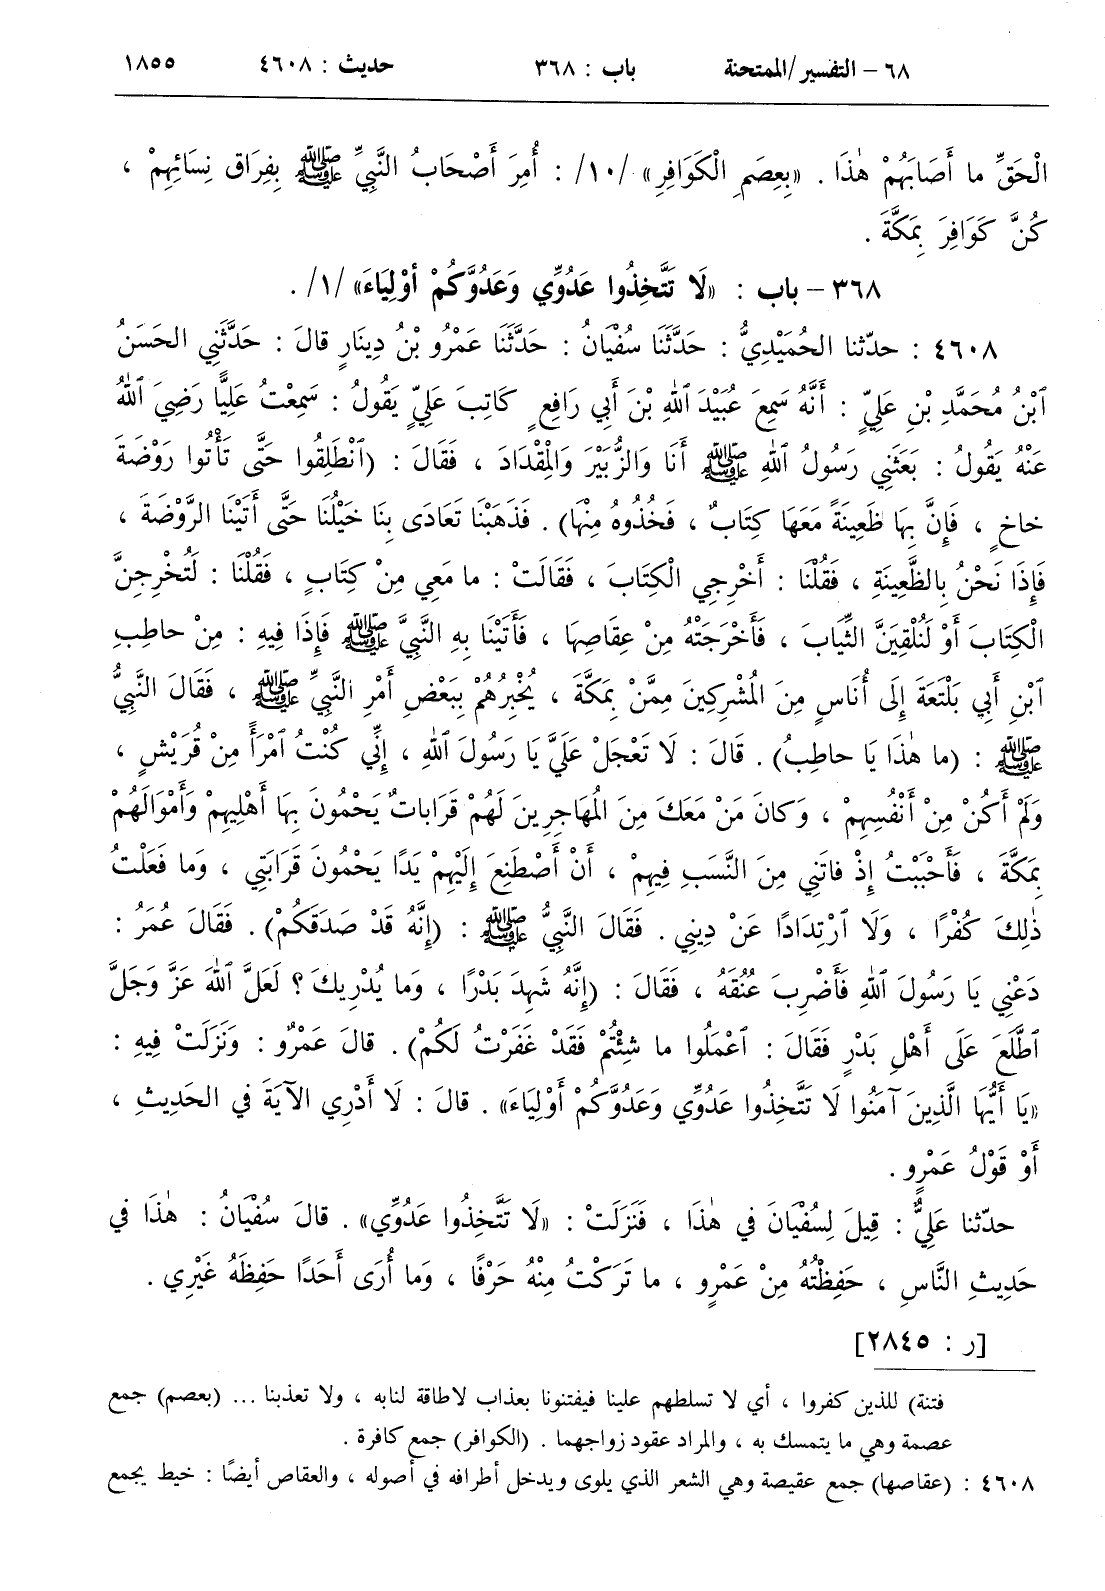 ٦٨ – التفسير/الممتحنة باب : ٣٦٨ حديث : ٤٦٠٨ ١٨٥٥
الْحَقِّ ما أَصَابَهُمْ هٰذَا . «بِعِصَمِ الْكَوَافِرِ» /١٠/ : أُمِرَ أَصْحَابُ النَّبِيِّ ﷺ بِفِرَاقِ نِسَائِهِمْ ،
كُنَّ كَوَافِرَ بِمَكَّةَ .
٣٦٨ – باب : «لَا تَتَّخِذُوا عَدُوِّي وَعَدُوَّكُمْ أَوْلِيَاءَ» /١/ .
٤٦٠٨ : حدّثنا الحُمَيْدِيُّ : حَدَّثَنَا سُفْيَانُ : حَدَّثَنَا عَمْرُو بْنُ دِينَارٍ قالَ : حَدَّثَنِي الحَسَنُ
ٱبْنُ مُحَمَّدِ بْنِ عَلِيٍّ : أَنَّهُ سَمِعَ عُبَيْدَ ٱللهِ بْنَ أَبِي رَافِعٍ كَاتِبَ عَلِيٍّ يَقُولُ : سَمِعْتُ عَلِيًّا رَضِيَ ٱللهُ
عَنْهُ يَقُولُ : بَعَثَنِي رَسُولُ ٱللهِ ﷺ أَنَا وَالزُّبَيْرَ وَالْمِقْدَادَ ، فَقَالَ : (ٱنْطَلِقُوا حَتَّى تَأْتُوا رَوْضَةَ
خاخٍ ، فَإِنَّ بِهَا ظَعِينَةً مَعَهَا كِتَابٌ ، فَخُذُوهُ مِنْهَا) . فَذَهَبْنَا تَعَادَى بِنَا خَيْلُنَا حَتَّى أَتَيْنَا الرَّوْضَةَ ،
فَإِذَا نَحْنُ بِالظَّعِينَةِ ، فَقُلْنَا : أَخْرِجِي الْكِتَابَ ، فَقَالَتْ : ما مَعِي مِنْ كِتَابٍ ، فَقُلْنَا : لَتُخْرِجِنَّ
الْكِتَابَ أَوْ لَنُلْقِيَنَّ الثِّيَابَ ، فَأَخْرَجَتْهُ مِنْ عِقَاصِهَا ، فَأَتَيْنَا بِهِ النَّبِيَّ ﷺ فَإِذَا فِيهِ : مِنْ حاطِبِ
ٱبْنِ أَبِي بَلْتَعَةَ إِلَى أُنَاسٍ مِنَ المُشْرِكِينَ مِمَّنْ بِمَكَّةَ ، يُخْبِرُهُمْ بِبَعْضِ أَمْرِ النَّبِيِّ ﷺ ، فَقَالَ النَّبِيُّ
ﷺ : (ما هٰذَا يَا حاطِبُ) . قَالَ : لَا تَعْجَلْ عَلَيَّ يَا رَسُولَ ٱللهِ ، إِنِّي كُنْتُ ٱمْرَأً مِنْ قُرَيْشٍ ،
وَلَمْ أَكُنْ مِنْ أَنْفُسِهِمْ ، وَكانَ مَنْ مَعَكَ مِنَ المُهَاجِرِينَ لَهُمْ قَرَابَاتٌ يَحْمُونَ بِهَا أَهْلِيهِمْ وَأَمْوَالَهُمْ
بِمَكَّةَ ، فَأَحْبَبْتُ إِذْ فاتَنِي مِنَ النَّسَبِ فِيهِمْ ، أَنْ أَصْطَنِعَ إِلَيْهِمْ يَدًا يَحْمُونَ قَرَابَتِي ، وَما فَعَلْتُ
ذٰلِكَ كُفْرًا ، وَلَا ٱرْتِدَادًا عَنْ دِينِي . فَقَالَ النَّبِيُّ ﷺ : (إِنَّهُ قَدْ صَدَقَكُمْ) . فَقَالَ عُمَرُ :
دَعْنِي يَا رَسُولَ ٱللهِ فَأَضْرِبَ عُنُقَهُ ، فَقَالَ : (إِنَّهُ شَهِدَ بَدْرًا ، وَما يُدْرِيكَ ؟ لَعَلَّ ٱللهَ عَزَّ وَجَلَّ
ٱطَّلَعَ عَلَى أَهْلِ بَدْرٍ فَقَالَ : ٱعْمَلُوا ما شِئْتُمْ فَقَدْ غَفَرْتُ لَكُمْ) . قالَ عَمْرٌو : وَنَزَلَتْ فِيهِ :
«يَا أَيُّهَا الَّذِينَ آمَنُوا لَا تَتَّخِذُوا عَدُوِّي وَعَدُوَّكُمْ أَوْلِيَاءَ» . قالَ : لَا أَدْرِي الآيَةَ في الحَدِيثِ ،
أَوْ قَوْلُ عَمْرٍو .
حدّثنا عَلِيٌّ : قِيلَ لِسُفْيَانَ في هٰذَا ، فَنَزَلَتْ : «لَا تَتَّخِذُوا عَدُوِّي» . قالَ سُفْيَانُ : هٰذَا في
حَدِيثِ النَّاسِ ، حَفِظْتُهُ مِنْ عَمْرٍو ، ما تَرَكْتُ مِنْهُ حَرْفًا ، وَما أُرَى أَحَدًا حَفِظَهُ غَيْرِي .
[ر : ٢٨٤٥]
فتنة) للذين كفروا ، أي لا تسلطهم علينا فيفتنونا بعذاب لاطاقة لنابه ، ولا تعذبنا ... (بعصم) جمع
عصمة وهي ما يتمسك به ، والمراد عقود زواجهما . (الكوافر) جمع كافرة .
٤٦٠٨ : (عقاصها) جمع عقيصة وهي الشعر الذي يلوى ويدخل أطرافه في أصوله ، والعقاص أيضًا : خيط يجمع